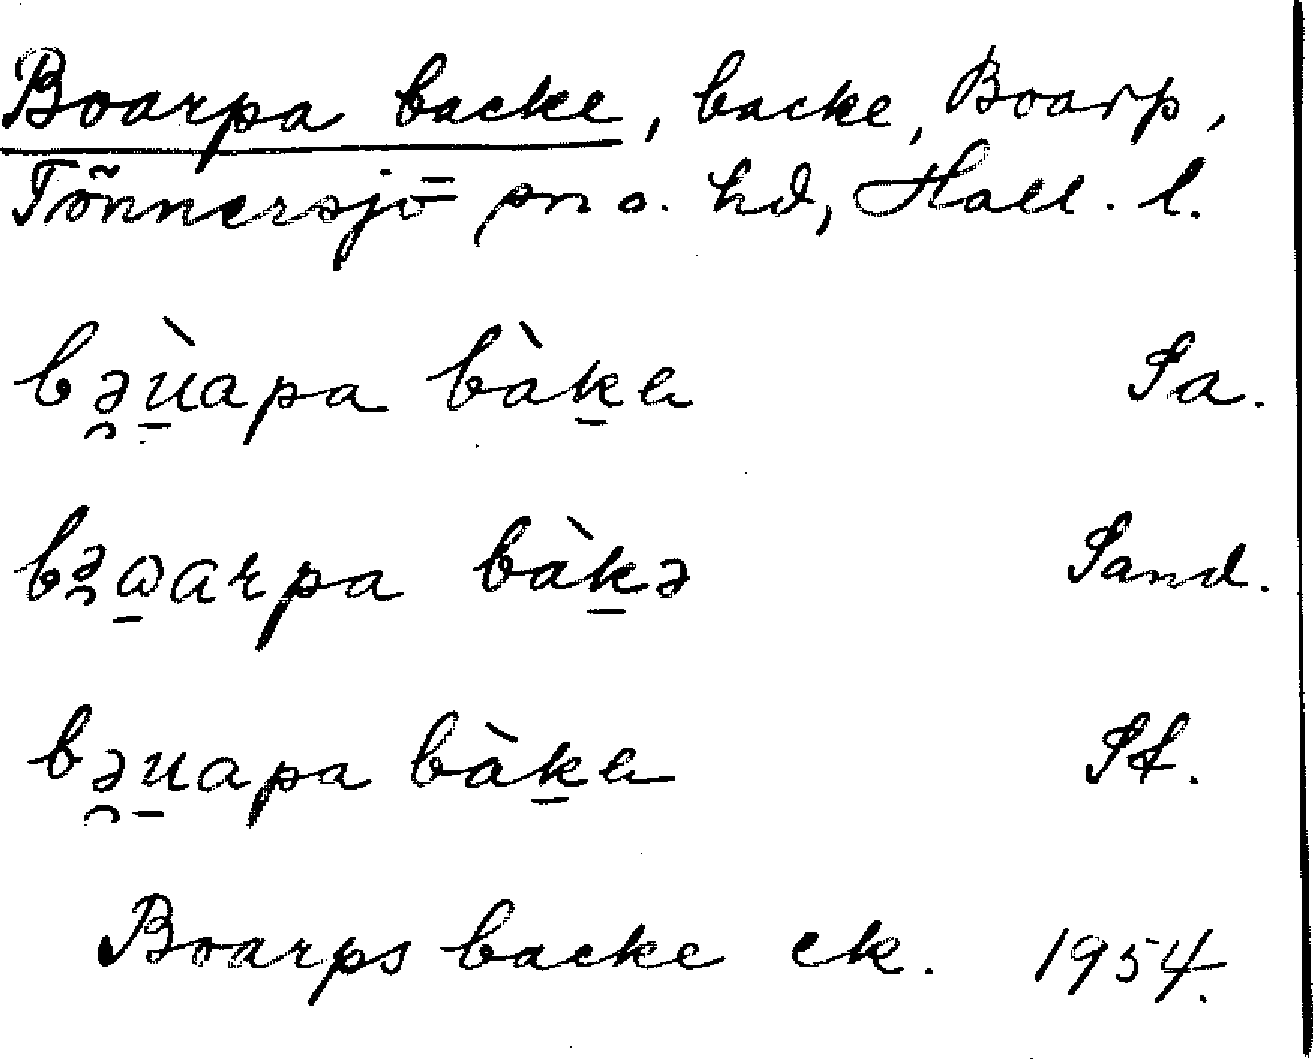 Boarpa backe, backe, Boarp,
Tönnersjö sn o. hd, Hall. l.
bə̯ù̠apa bàk̠e Sa.
bəωarpa bàk̠ə Sand.
bə̯u̠apa bàk̠e St.
Boarps backe ek. 1954.